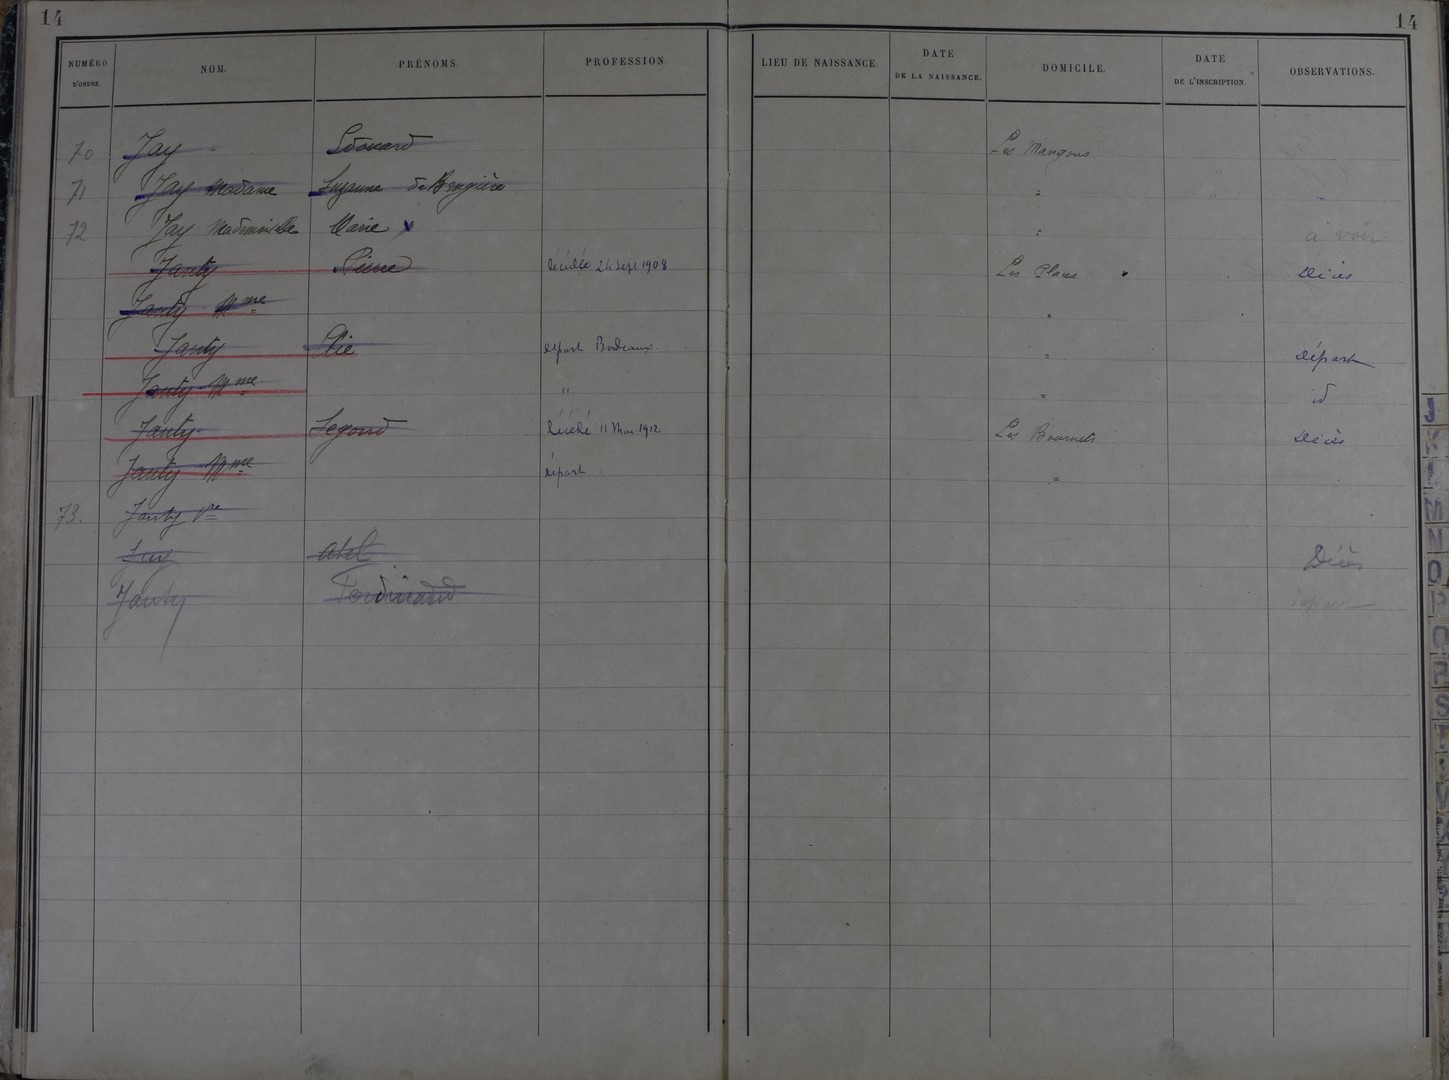 14 14
NUMÉRO D'ORDRE. NOM. PRÉNOMS. PROFESSION. LIEU DE NAISSANCE. DATE DE LA NAISSANCE. DOMICILE. DATE DE L'INSCRIPTION. OBSERVATIONS.
70 Jay Edouard Les Mangons
71 Jay Madame Suzanne de Brugière "
72 Jay Mademoiselle Marie x " à voir
Janty Pierre Décédé 24 Sept 1908 Les Places Décès
Janty Mme "
Janty Elie départ Bordeaux " Départ
Janty Mme " " id
Janty Segond Décédé 11 Mai 1912 Les Bournets Décès
Janty Mme départ "
73. Janty Vve
Abel Décès
Janty Ferdinand départ
J
K
L
M
N
O
P
Q
R
S
T